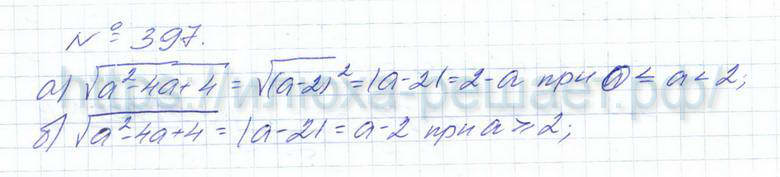 № 397.
а) √(a²-4a+4) = √(a-2)² = |a-2| = 2-a при 0 ≤ a < 2;
б) √(a²-4a+4) = |a-2| = a-2 при a ≥ 2;
https://илюха-решает.рф/